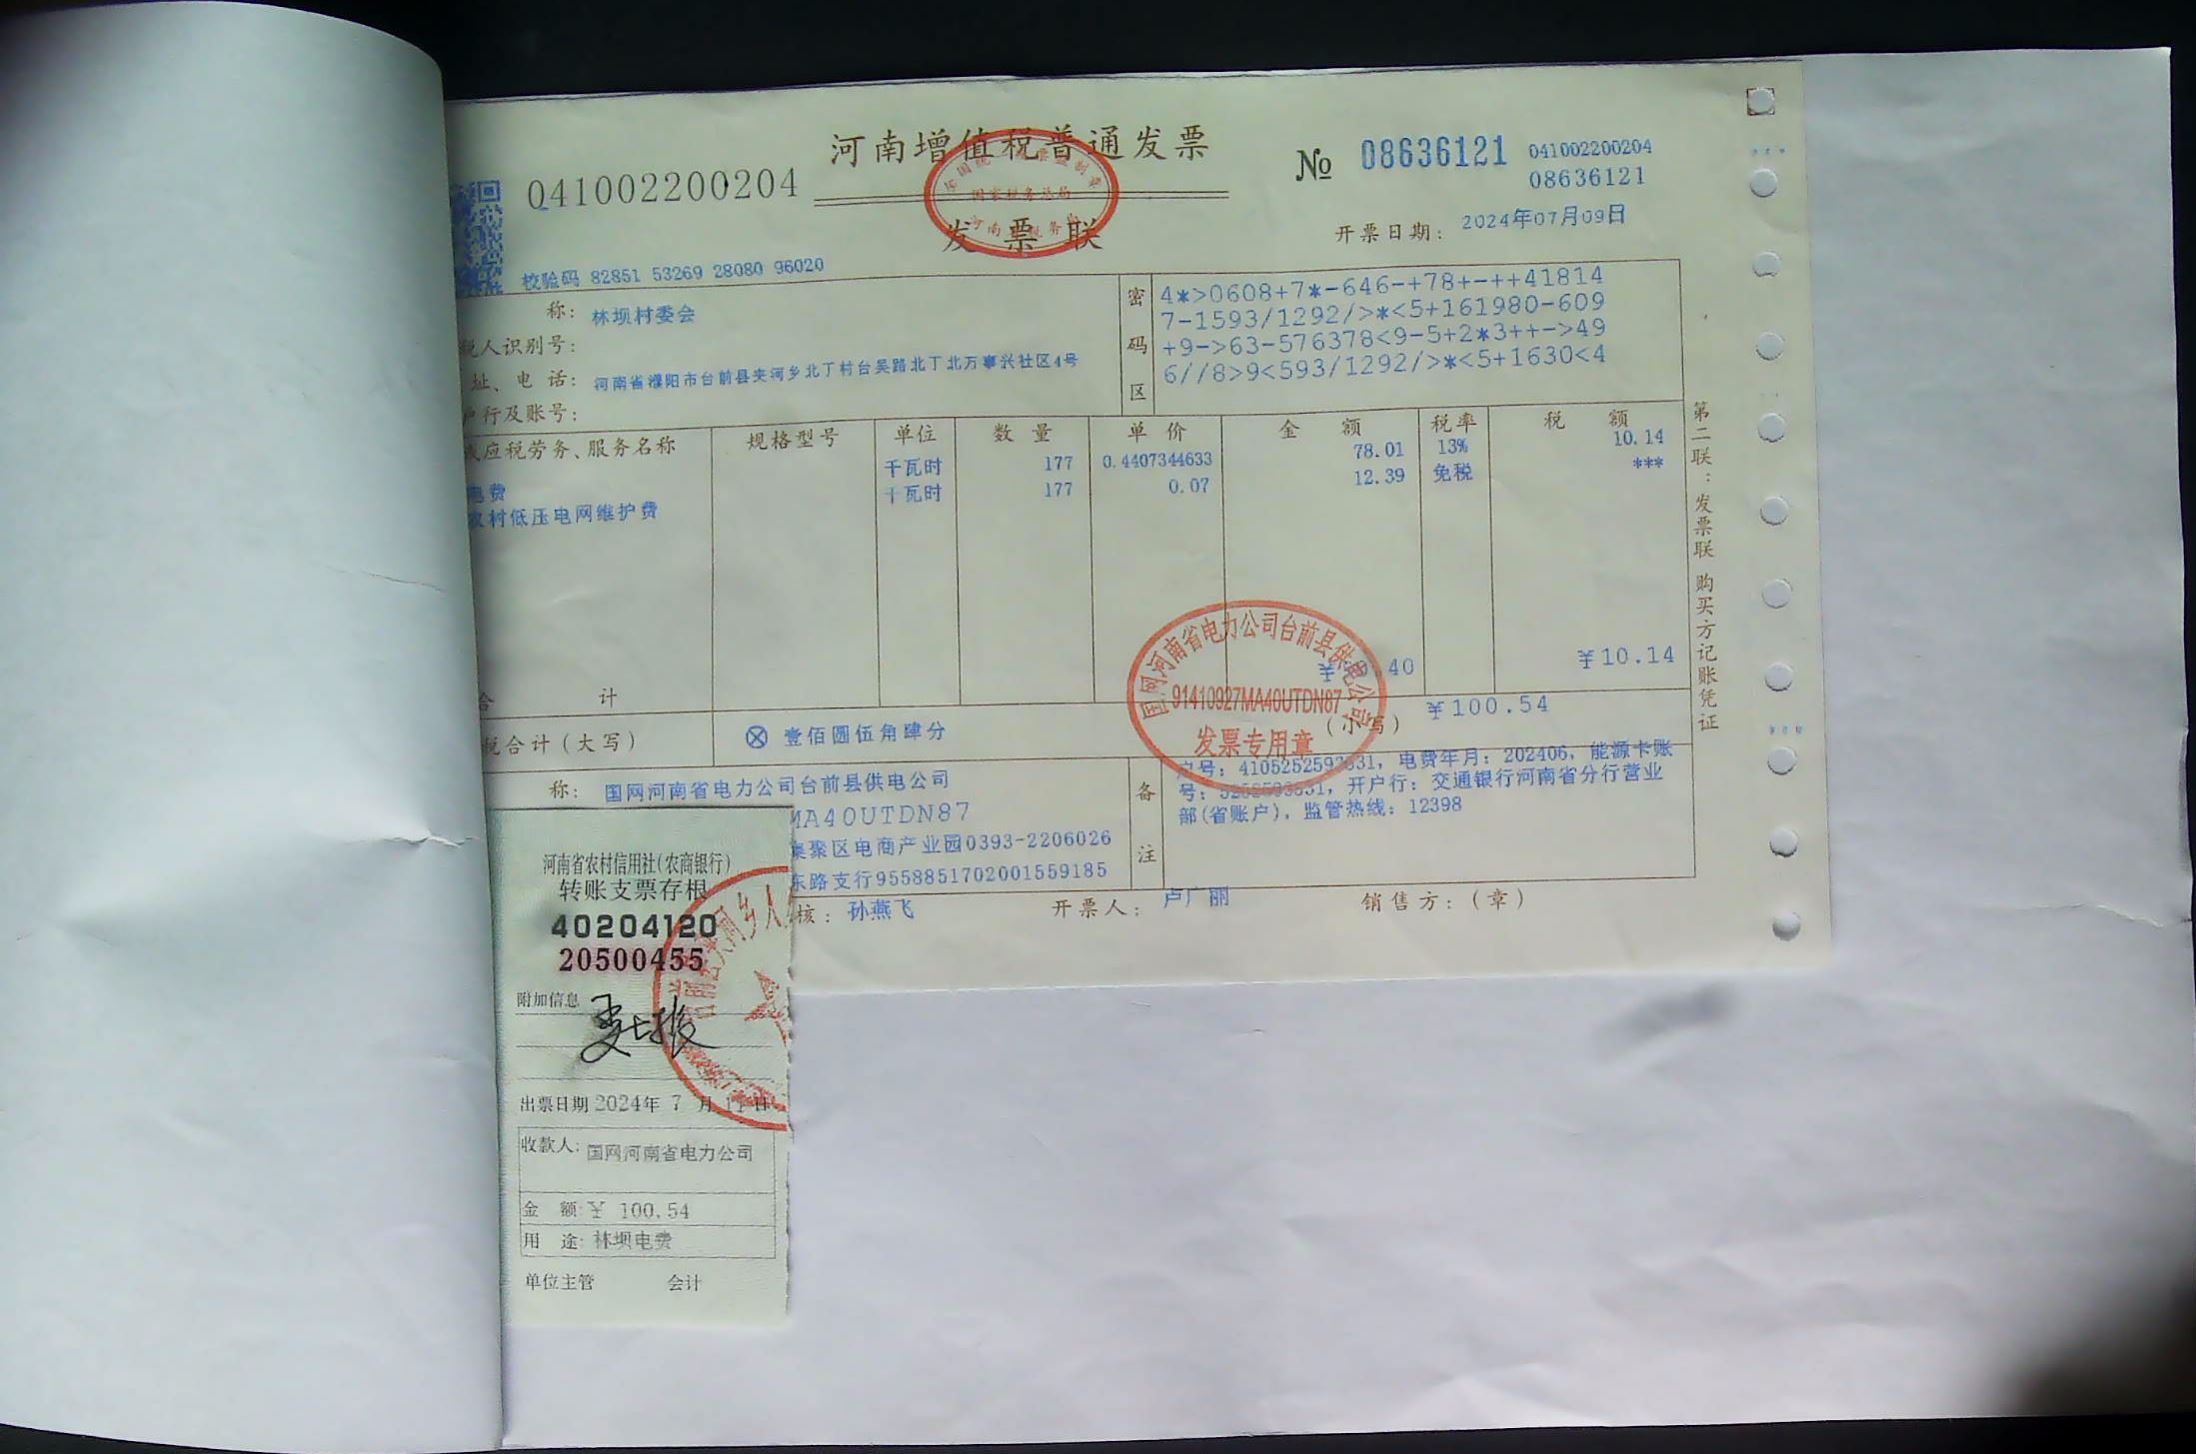 河南增值税普通发票
041002200204
№ 08636121
041002200204
08636121
发票联
开票日期: 2024年07月09日
校验码 82851 53269 28080 96020
称: 林坝村委会
税人识别号:
址、电 话: 河南省濮阳市台前县夹河乡北丁村台吴路北丁北万事兴社区4号
户行及账号:
密码区
4*>0608+7*-646-+78+-++41814
7-1593/1292/>*<5+161980-609
+9->63-576378<9-5+2*3++->49
6//8>9<593/1292/>*<5+1630<4
或应税劳务、服务名称 规格型号 单位 数 量 单 价 金 额 税率 税 额
电费 千瓦时 177 0.4407344633 78.01 13% 10.14
农村低压电网维护费 千瓦时 177 0.07 12.39 免税 ***
合 计 ¥ .40 ¥10.14
税合计(大写) ⊗ 壹佰圆伍角肆分 (小写) ¥100.54
称: 国网河南省电力公司台前县供电公司
MA40UTDN87
集聚区电商产业园0393-2206026
东路支行9558851702001559185
备注
户号: 4105252592 31, 电费年月: 202406, 能源卡账
号: 31, 开户行: 交通银行河南省分行营业
部(省账户), 监管热线: 12398
核: 孙燕飞 开票人: 卢广丽 销售方:(章)
第二联:发票联 购买方记账凭证
国网河南省电力公司台前县供电公司
91410927MA40UTDN87
发票专用章
河南省农村信用社(农商银行)
转账支票存根
40204120
20500455
附加信息
出票日期 2024年 7 月 11 日
收款人: 国网河南省电力公司
金 额: ¥ 100.54
用 途: 林坝电费
单位主管 会计